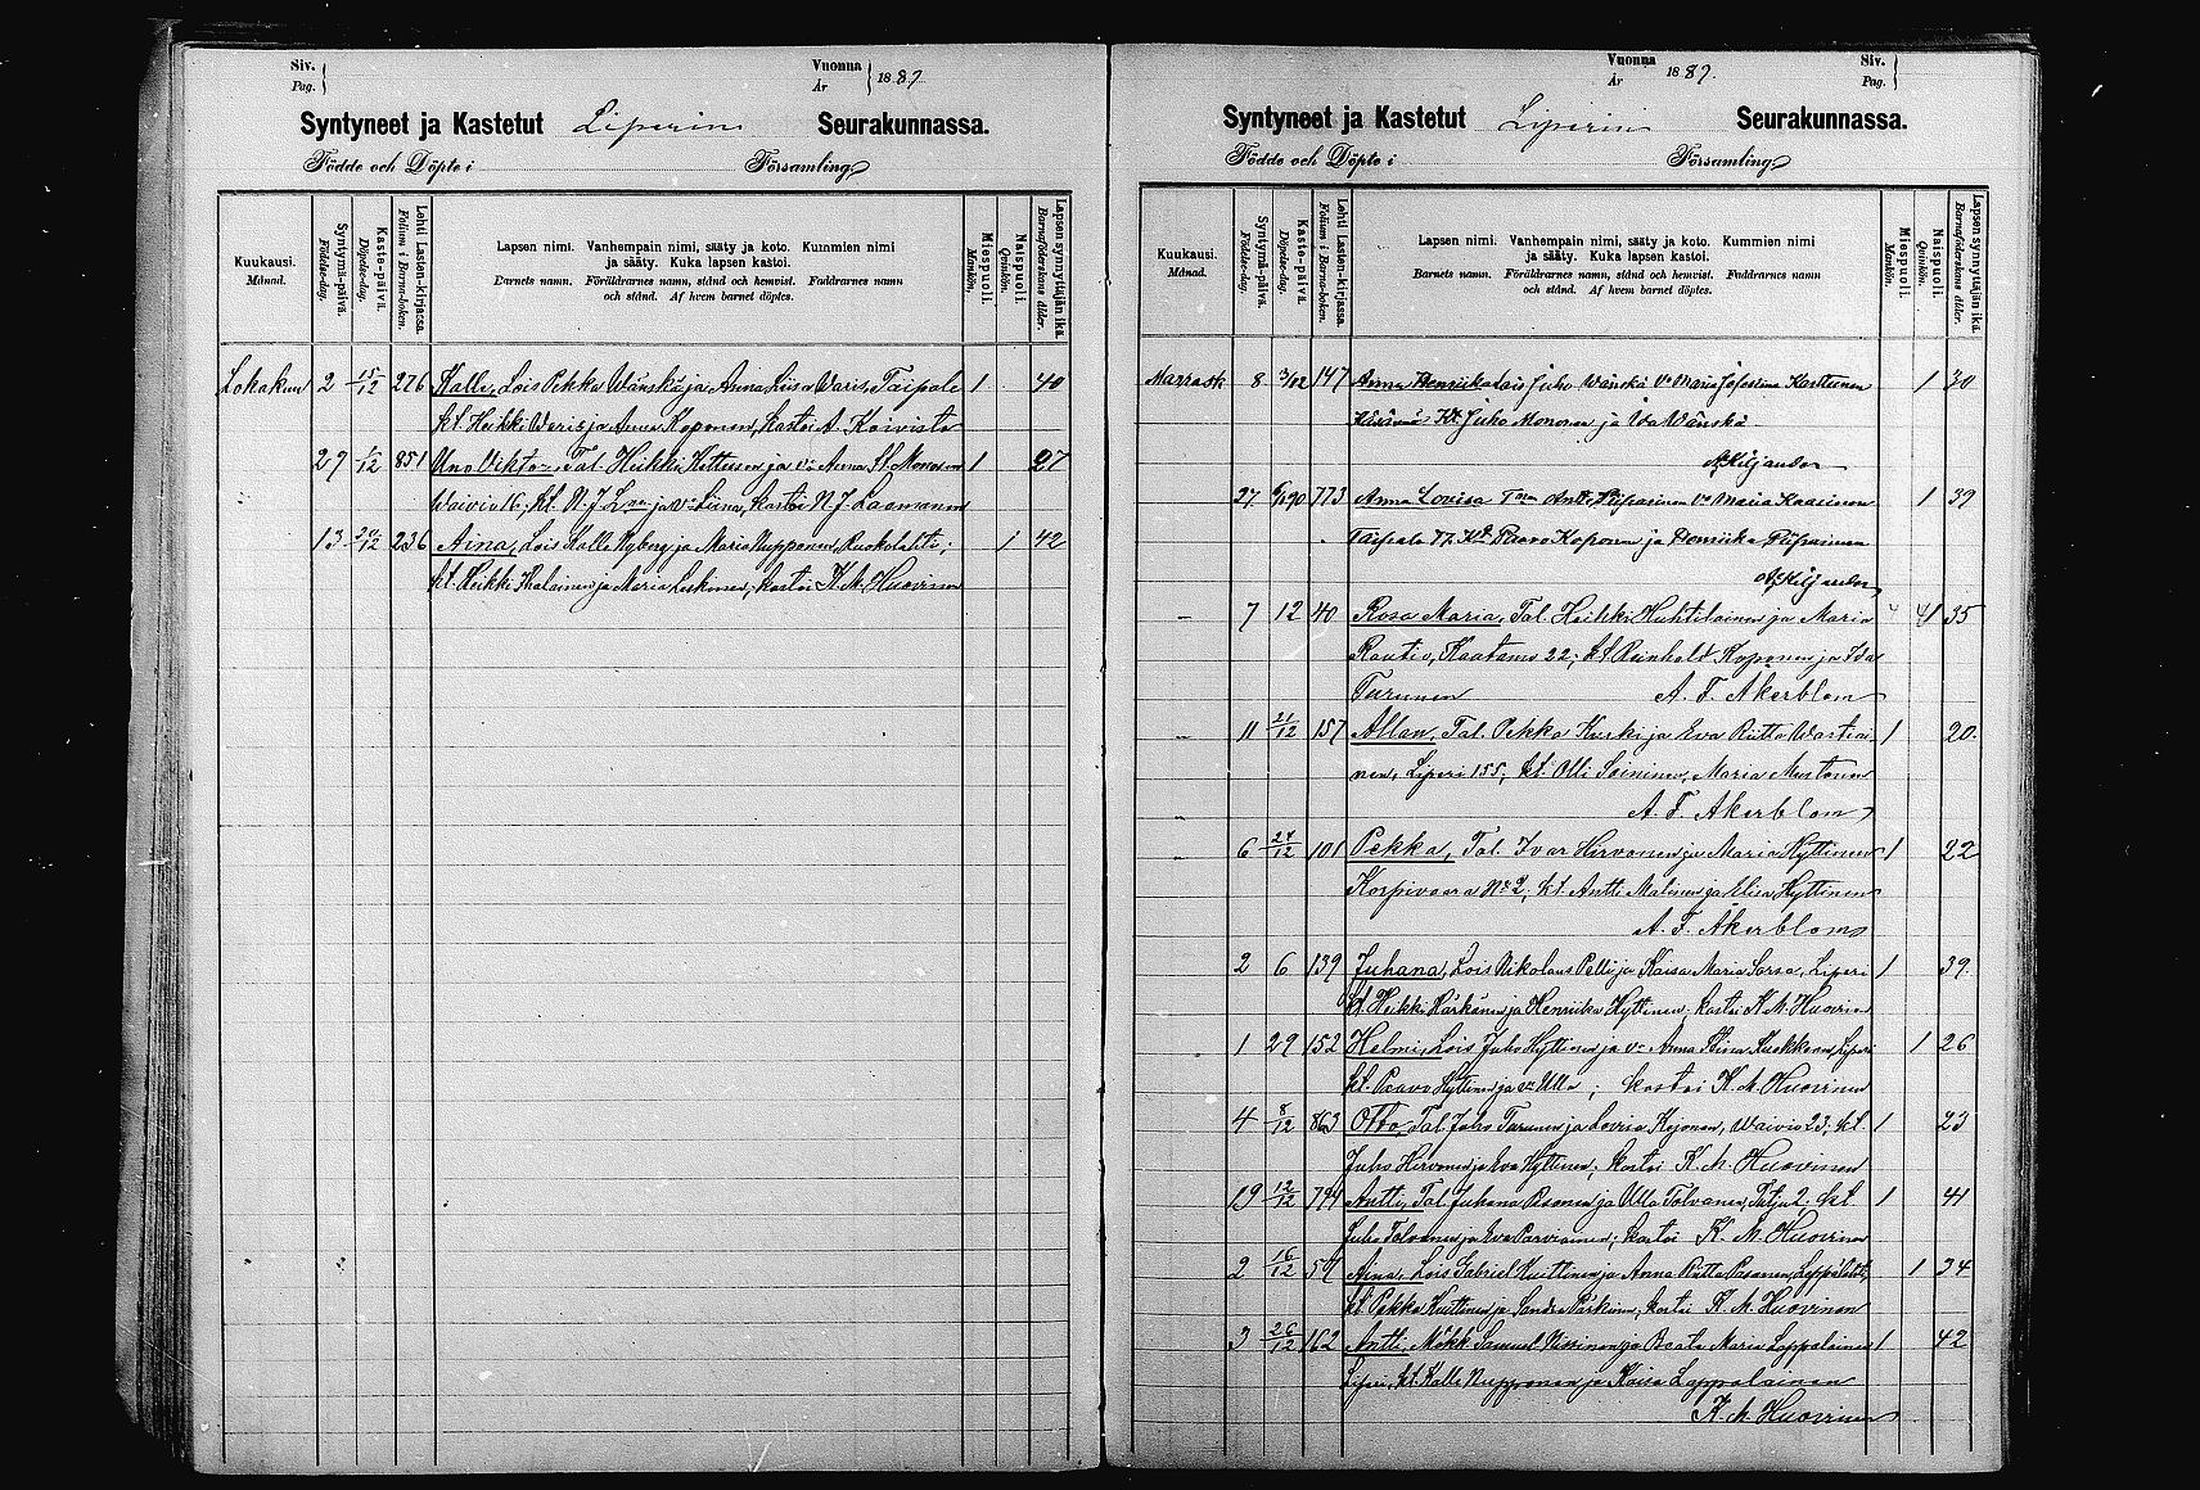 Siv.
Pag.
Vuonna
År
1887.
Syntyneet ja Kastetut Liperin Seurakunnassa.
Födde och Döpte i Församling
Kuukausi.
Månad.
Syntymä-päivä.
Födelse-dag.
Kaste-päivä.
Döpelse-dag.
Lehti Lasten-kirjassa.
Folium i Barna-boken.
Lapsen nimi. Vanhempain nimi, sääty ja koto. Kummien nimi
ja sääty. Kuka lapsen kastoi.
Barnets namn. Föräldrarnes namn, stånd och hemvist. Faddrarnes namn
och stånd. Af hvem barnet döptes.
Miespuoli.
Mankön.
Naispuoli.
Qvinkön.
Lapsen synnyttäjän ikä.
Barnaföderskans ålder.
Lokakuu 2 15/12 276 Kalle, Lois Pekka Wänskä ja Anna Liisa Waris, Taipale 1 40
kt. Heikki Waris ja Anna Koponen, kastoi A. Koivisto
27 1/12 851 Uno Viktor, Tal. Heikki Kettusen ja vo Anna St. Monosen 1 27
Waivio 16, kt. N. J. Lnen ja vo Liina, kastoi N. J. Laamanen
13 20/12 236 Aina, Lois Kalle Nyberg ja Maria Nupponen, Ruokolahti; 1 42
kt. Heikki Ikalainen ja Maria Leskinen; kastoi K. M. Huovinen
Vuonna
År
1887.
Siv.
Pag.
Syntyneet ja Kastetut Liperin Seurakunnassa.
Födde och Döpte i Församling
Kuukausi.
Månad.
Syntymä-päivä.
Födelse-dag.
Kaste-päivä.
Döpelse-dag.
Lehti Lasten-kirjassa.
Folium i Barna-boken.
Lapsen nimi. Vanhempain nimi, sääty ja koto. Kummien nimi
ja sääty. Kuka lapsen kastoi.
Barnets namn. Föräldrarnes namn, stånd och hemvist. Faddrarnes namn
och stånd. Af hvem barnet döptes.
Miespuoli.
Mankön.
Naispuoli.
Qvinkön.
Lapsen synnyttäjän ikä.
Barnaföderskans ålder.
Marrask 8 3/12 147 Anna Henriika Lois Juho Wänskä Vo Maria Josefiina Karttunen 1 30
Kt. Juho Mononen ja Ida Wänskä
A. Kiljander
27. 773 Anna Lovisa Antti Piiparinen Vo Maria Kaasinen 1 39
Taipale 77. Kt Paavo Koponen ja Henriika Piiparinen
A. Kiljander
— 7 12 40 Rosa Maria, Tal. Heikki Huhtilainen ja Maria 1 35
Rautio, Kaatamo 22; kt Reinhold Koponen ja Ida
Turunen A. F. Åkerblom
" 11 21/12 157 Allan, Tal. Pekka Kurki ja Eva Riitta Wartiai- 1 20.
nen, Liperi 155; kt. Olli Soininen, Maria Mustonen
" A. F. Akerblom
" 6 27/12 101 Pekka, Tal. Ivar Hirvonen ja Maria Hyttinen 1 22
Korpivaara No 2; kt. Antti Malinen ja Elisa Hyttinen
A. F. Åkerblom
2 6 139 Juhana, Lois Nikolaus Pelli ja Kaisa Maria Sorsa, Liperi 1 39.
kt. Heikki Kärkänen ja Henriika Hyttinen, kastoi K. M. Huovinen
1 29 152 Helmi, Lois Juho Hyttinen ja vo Anna Stina Kuokkanen, Liperi 1 26
kt. Paavo Hyttinen ja vo Ulla; kastoi K. M. Huovinen
4 8/12 863 Otto, Tal. Juho Turunen ja Lovisa Kejonen, Waivio 23; kt. 1 23
Juho Hirvonen ja Eva Hyttinen; kastoi K. M. Huovinen
19 12/12 794 Antti, Tal. Juhana Rsonen ja Ulla Tolvanen, 2; kt. 1 41
Juho Tolvanen ja Eva Parviainen; kastoi K. M. Huovinen
2 16/12 57 Aina, Lois Gabriel Kuittinen ja Anna Riitta Pasanen, Leppälahti, 1 34
kt. Pekka Kuittinen ja Sandra Pärkinen; kastoi K. M. Huovinen
3 26/12 162 Antti, Mökk. Samuel Nissinen ja Beata Maria Lappalainen 1 42
Liperi, kt. Kalle Nupponen ja Kaisa Lappalainen
K. M. Huovinen